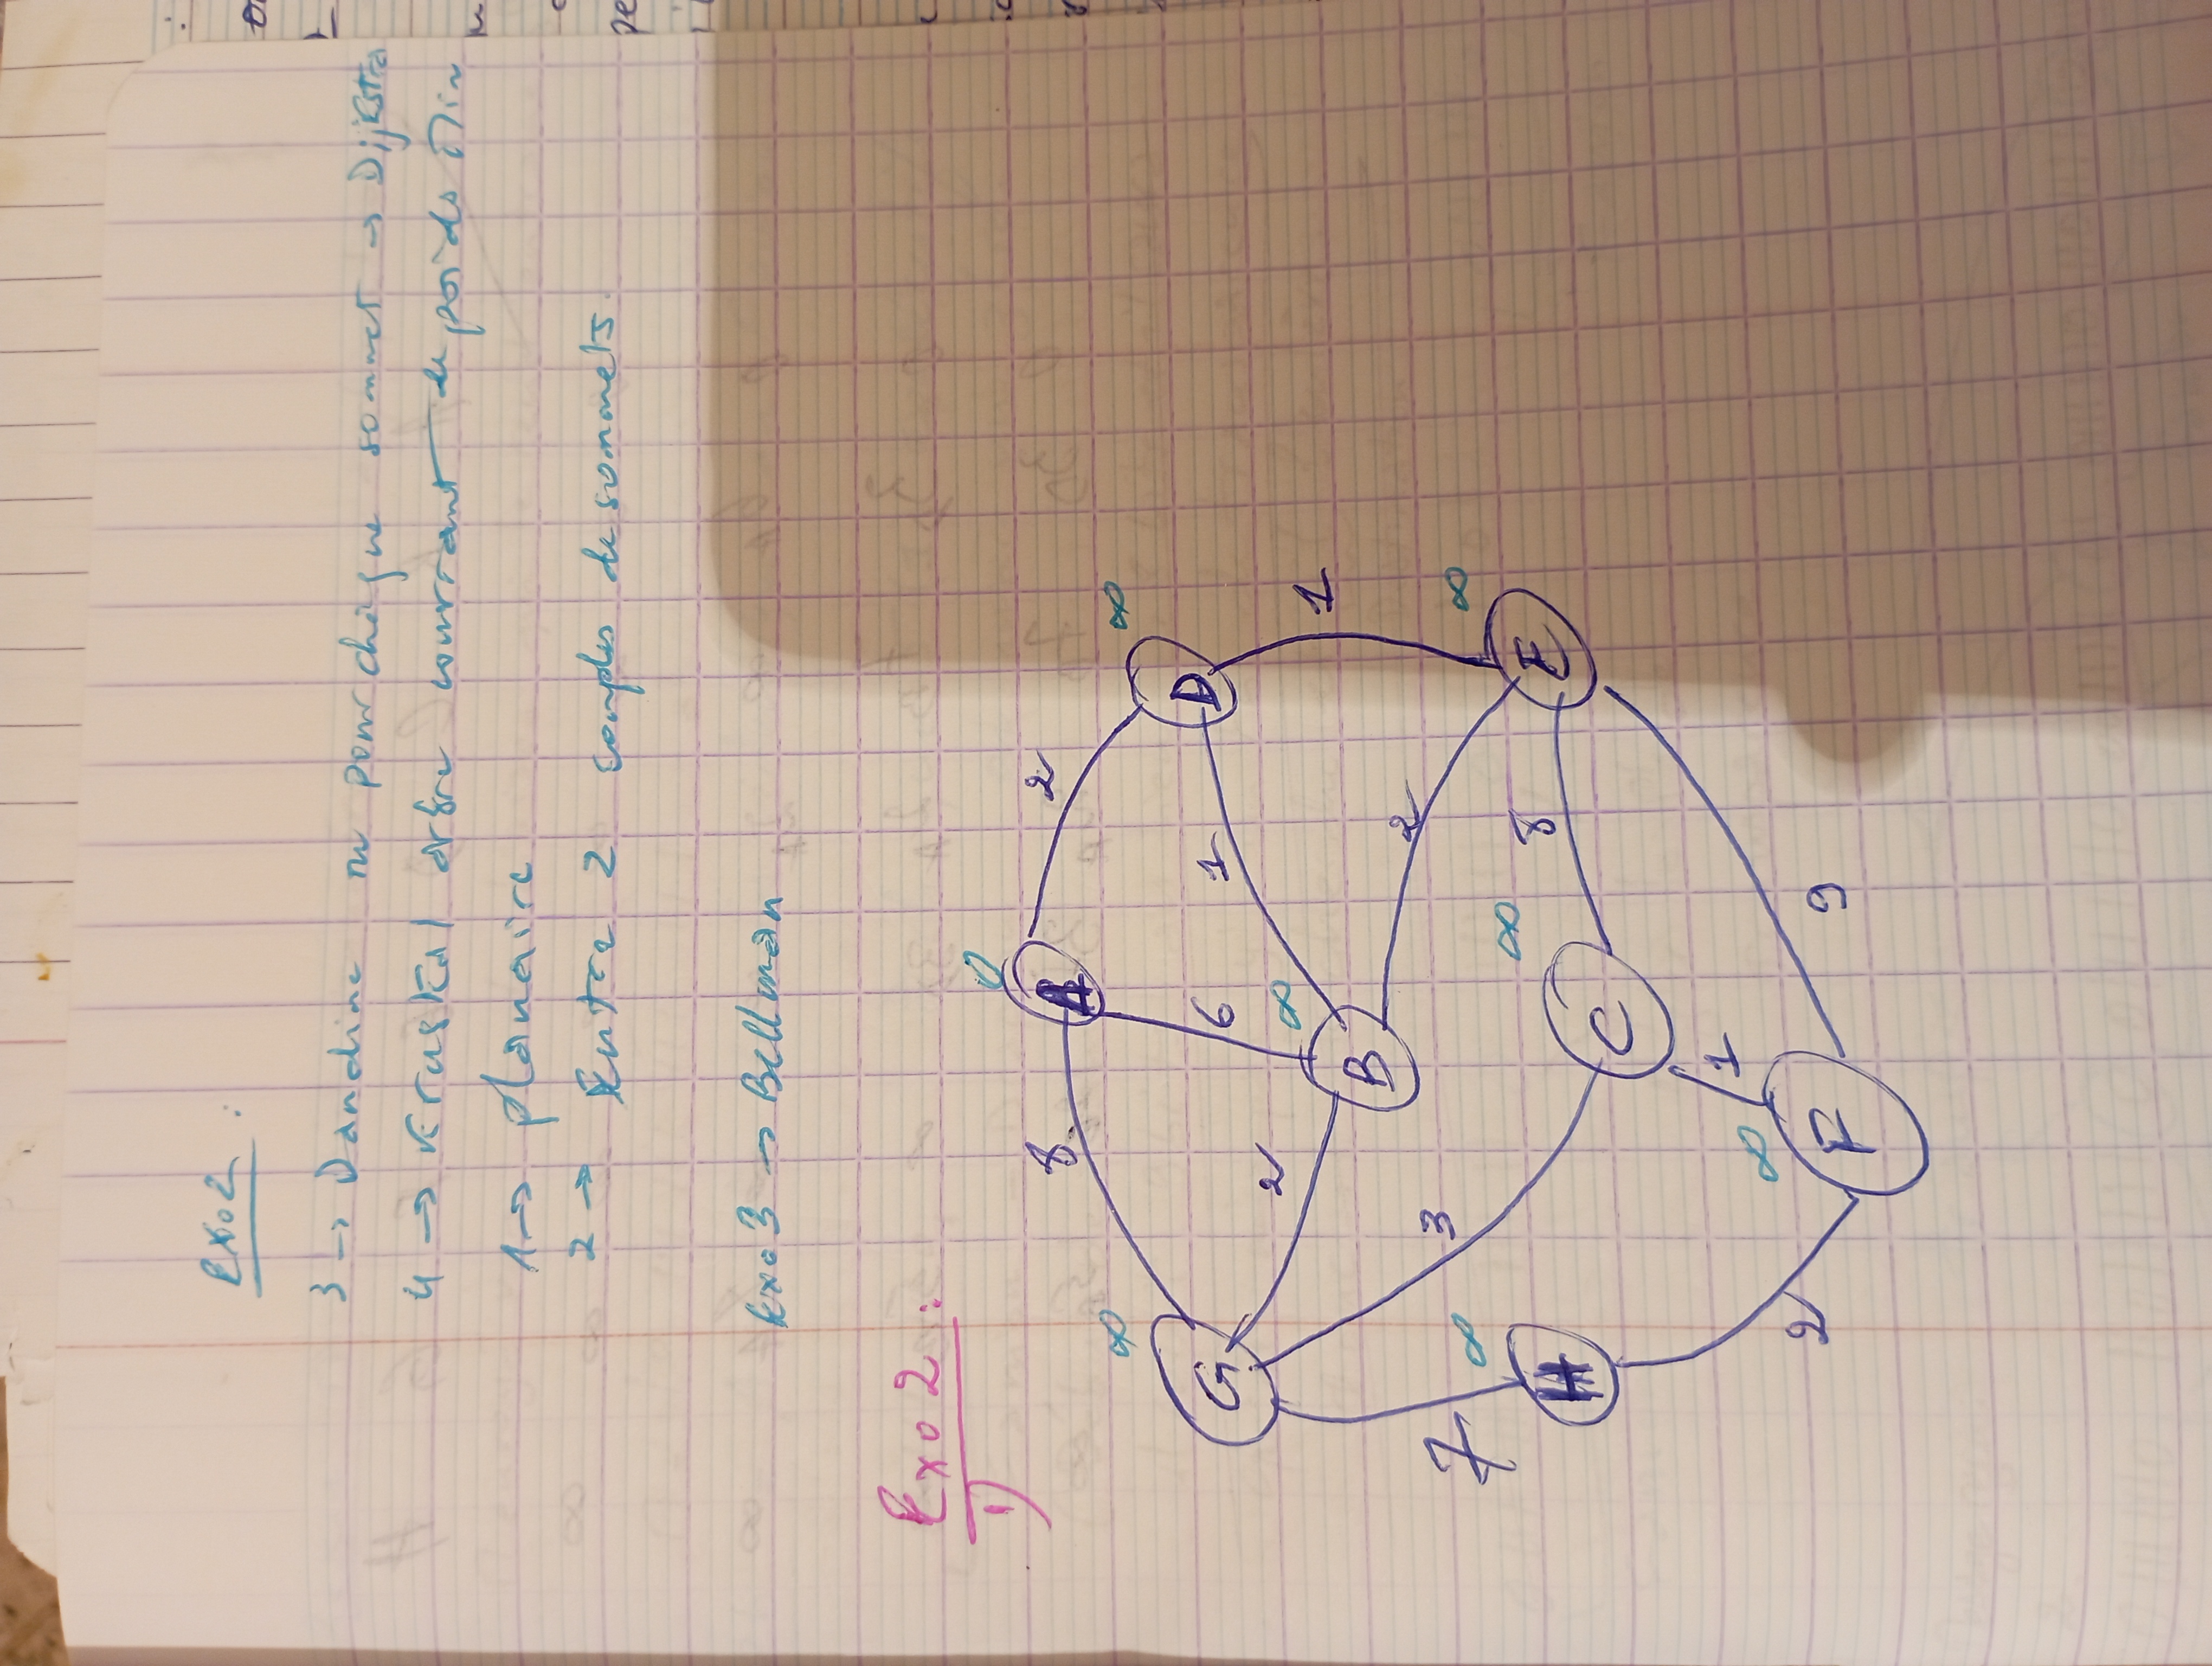 Exo 2 :
3 → Dandine ou pour chaque sommet → Dijksta
4 → Kruskal arbre couvrant de poids Min
1 → planaire
2 → Entre 2 couples de sommets.
Exo 3 → Bellman
Exo 2 :
1)
G ∞
8
A 0
2
D ∞
6
1
2
B ∞
7
3
2
1
H ∞
C ∞
8
E ∞
2
1
F ∞
9